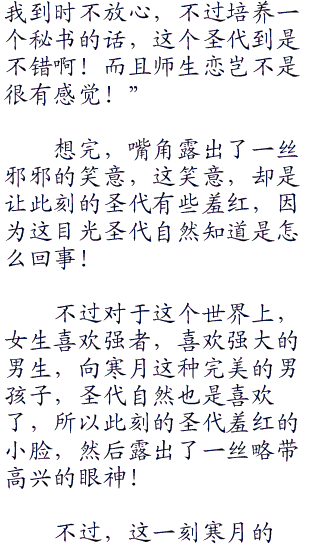 我到时不放心，不过培养一
个秘书的话，这个圣代到是
不错啊！而且师生恋岂不是
很有感觉！”
想完，嘴角露出了一丝
邪邪的笑意，这笑意，却是
让此刻的圣代有些羞红，因
为这目光圣代自然知道是怎
么回事！
不过对于这个世界上，
女生喜欢强者，喜欢强大的
男生，向寒月这种完美的男
孩子，圣代自然也是喜欢
了，所以此刻的圣代羞红的
小脸，然后露出了一丝略带
高兴的眼神！
不过，这一刻寒月的